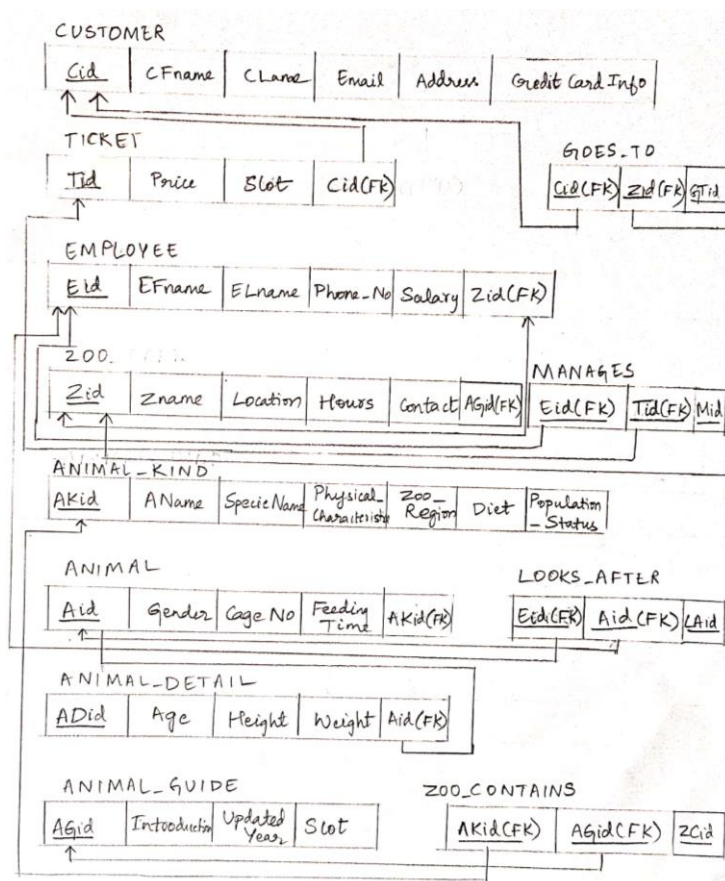 CUSTOMER
Cid CFname CLame Email Address Credit Card Info
TICKET
Tid Price Slot Cid(FK)
GOES_TO
Cid(FK) Zid(FK) GTid
EMPLOYEE
EId EFname ELname Phone_No Salary Zid(FK)
ZOO
Zid Zname Location Hours Contact AGid(FK)
MANAGES
Eid(FK) Tid(FK) Mid
ANIMAL_KIND
AKid AName SpecieName Physical_ Characteristics Zoo_ Region Diet Population _Status
ANIMAL
Aid Gender Cage No Feeding Time AKid(FK)
LOOKS_AFTER
Eid(FK) Aid(FK) LAid
ANIMAL_DETAIL
ADid Age Height Weight Aid(FK)
ANIMAL_GUIDE
AGid Introduction Updated Year Slot
ZOO_CONTAINS
AKid(FK) AGid(FK) ZCid